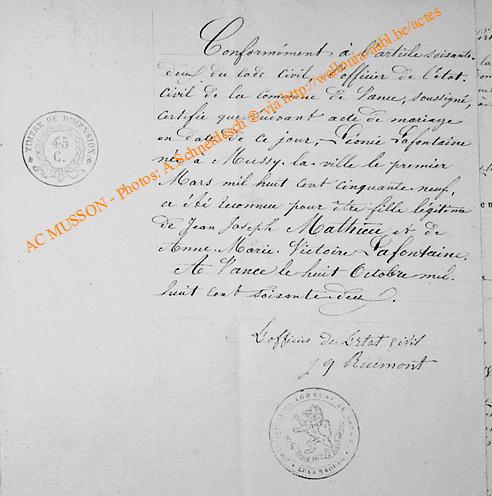 Conformément à l'article soixante
deux du Code Civil, l'officier de l'état
Civil de la commune de Vance, soussigné,
certifie que suivant acte de mariage
en date de ce jour, Léonie Lafontaine
née à Mussy la ville le premier
Mars mil huit cent cinquante neuf,
a été reconnue pour être fille légitime
de Jean Joseph Mathieu et de
Anne Marie Victoire Lafontaine.
A Vance le huit Octobre mil
huit cent soixante deux.
L'officier de l'Etat Civil
TIMBRE DE DIMENSION
45
C.
LUXEMBOURG
AC MUSSON - Photos: A.Schneidesch @ via http://wallonia-asbl.be/actes